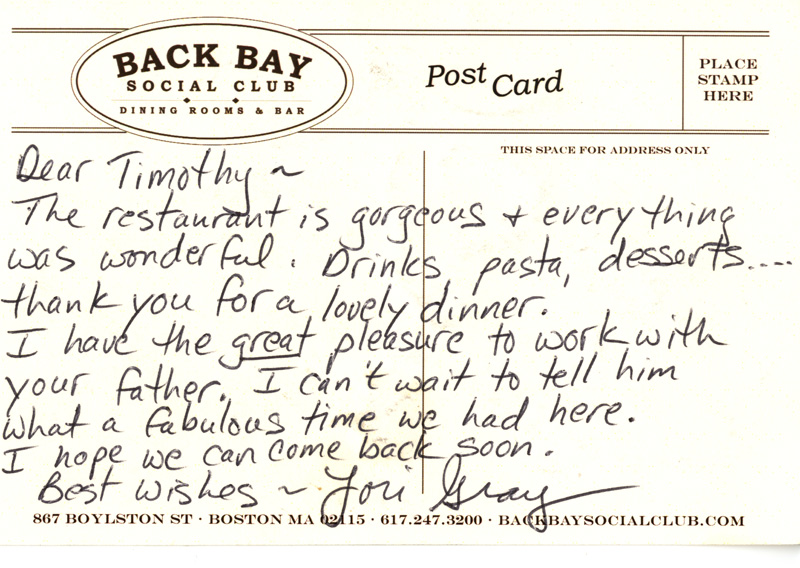 BACK BAY
SOCIAL CLUB
DINING ROOMS & BAR
Post Card
PLACE
STAMP
HERE
THIS SPACE FOR ADDRESS ONLY
Dear Timothy ~
The restaurant is gorgeous + everything
was wonderful. Drinks, pasta, desserts....
thank you for a lovely dinner.
I have the great pleasure to work with
your father. I can't wait to tell him
what a fabulous time we had here.
I hope we can come back soon.
Best Wishes ~ Lori Gray
867 BOYLSTON ST · BOSTON MA 02115 · 617.247.3200 · BACKBAYSOCIALCLUB.COM